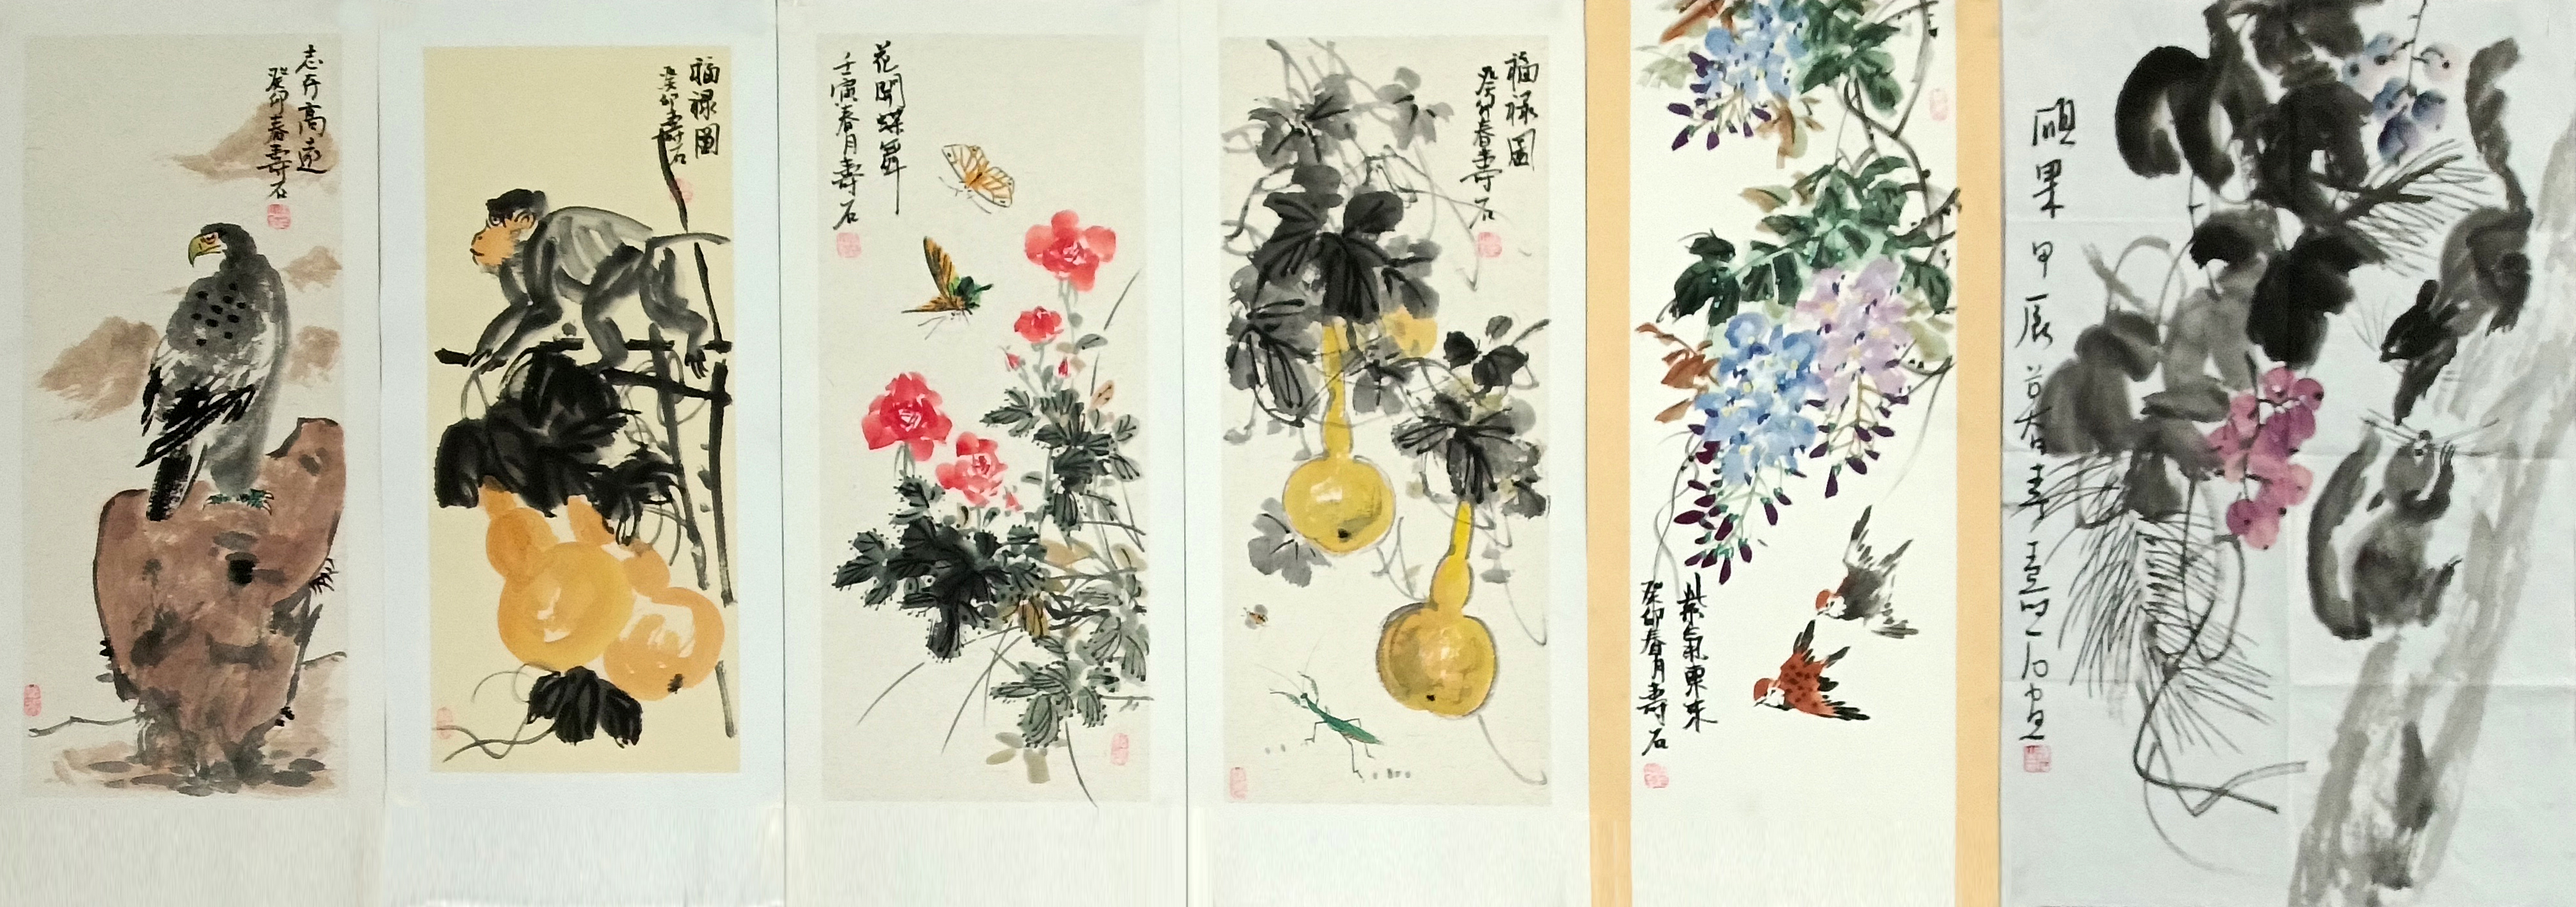 志存高遠
癸卯春壽石
福禄圖
癸卯壽石
花開蝶舞
壬寅春月壽石
福禄圖
癸卯春壽石
紫氣東來
癸卯春月壽石
碩果 甲辰前春壽石画